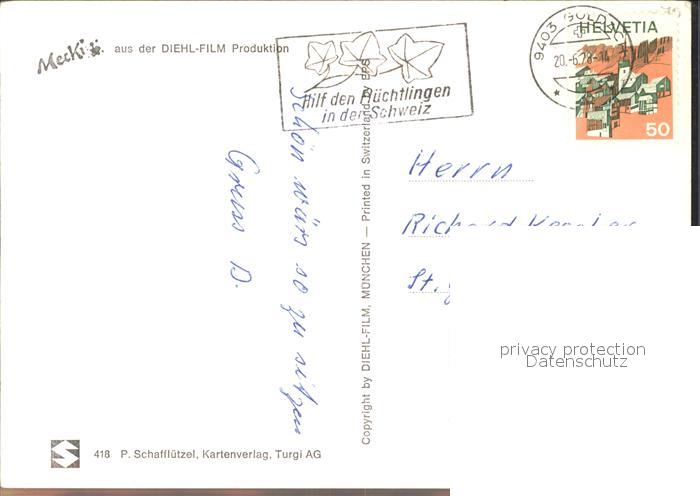 Mecki
aus der DIEHL-FILM Produktion
Hilf den Flüchtlingen
in der Schweiz
9403 GOLDACH
20.-6.78-14
HELVETIA
50
Schön wärs so zu sitzen
Gruss D.
Copyright by DIEHL-FILM, MÜNCHEN — Printed in Switzerland by EPS
Herrn
Richard
St.
privacy protection
Datenschutz
418 P. Schafflützel, Kartenverlag, Turgi AG